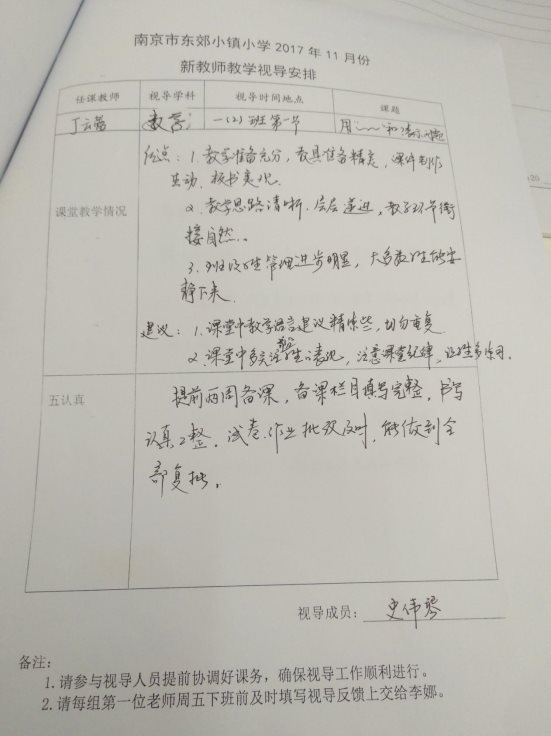 南京市东郊小镇小学 2017 年 11 月份
新教师教学视导安排
任课教师 视导学科 视导时间地点 课题
丁云 数学 一（2）班 第一节 用 和
优点：1. 教学准备充分，教具准备精美，课件制作
生动，板书美观.
2. 教学思路清晰，层层递进，教学环节衔
接自然..
课堂教学情况
3. 对学生管理进步明显，大多数学生能安
静下来.
建议：1. 课堂中教学语言建议精炼些，切勿重复
2. 课堂中多关注学生的表现，注意课堂纪律，让学生多练习.
五认真 提前两周备课，备课栏目填写完整，书写
认真工整，试卷.作业批改及时，能做到全
部复批。
视导成员：史伟琴
备注：
1.请参与视导人员提前协调好课务，确保视导工作顺利进行。
2.请每组第一位老师周五下班前及时填写视导反馈上交给李娜。